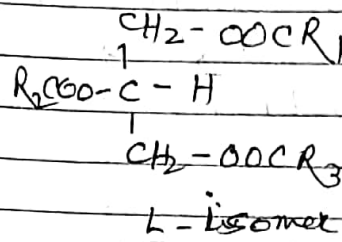 CH2 - OOCR1
R2COO - C - H
CH2 - OOCR3
L - Isomer